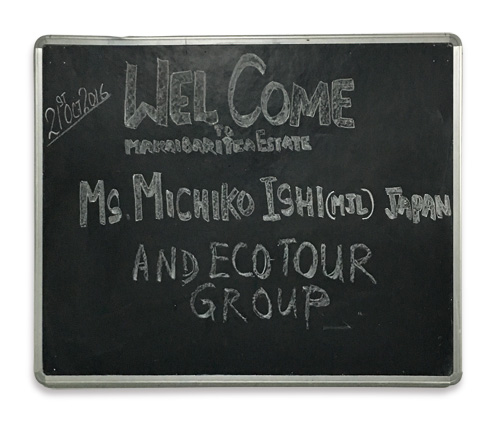 21st Oct 2016
WELCOME
TO
MAKAIBARI TEA ESTATE
Ms. MICHIKO ISHI (MJL) JAPAN
AND ECO TOUR
GROUP